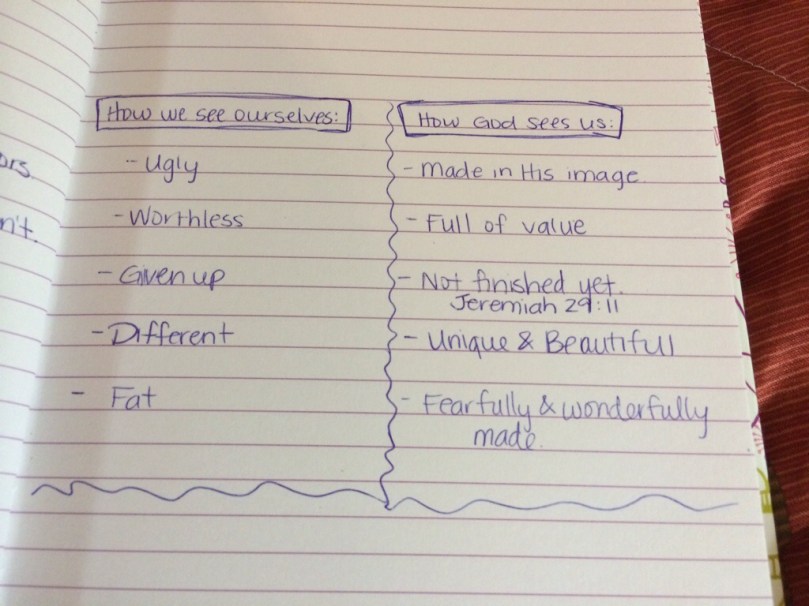 How we see ourselves:
- Ugly
- Worthless
- Given up
- Different
- Fat
How God sees us:
- made in His image.
- Full of value
- Not finished yet.
Jeremiah 29:11
- Unique & Beautiful
- Fearfully & wonderfully
made.